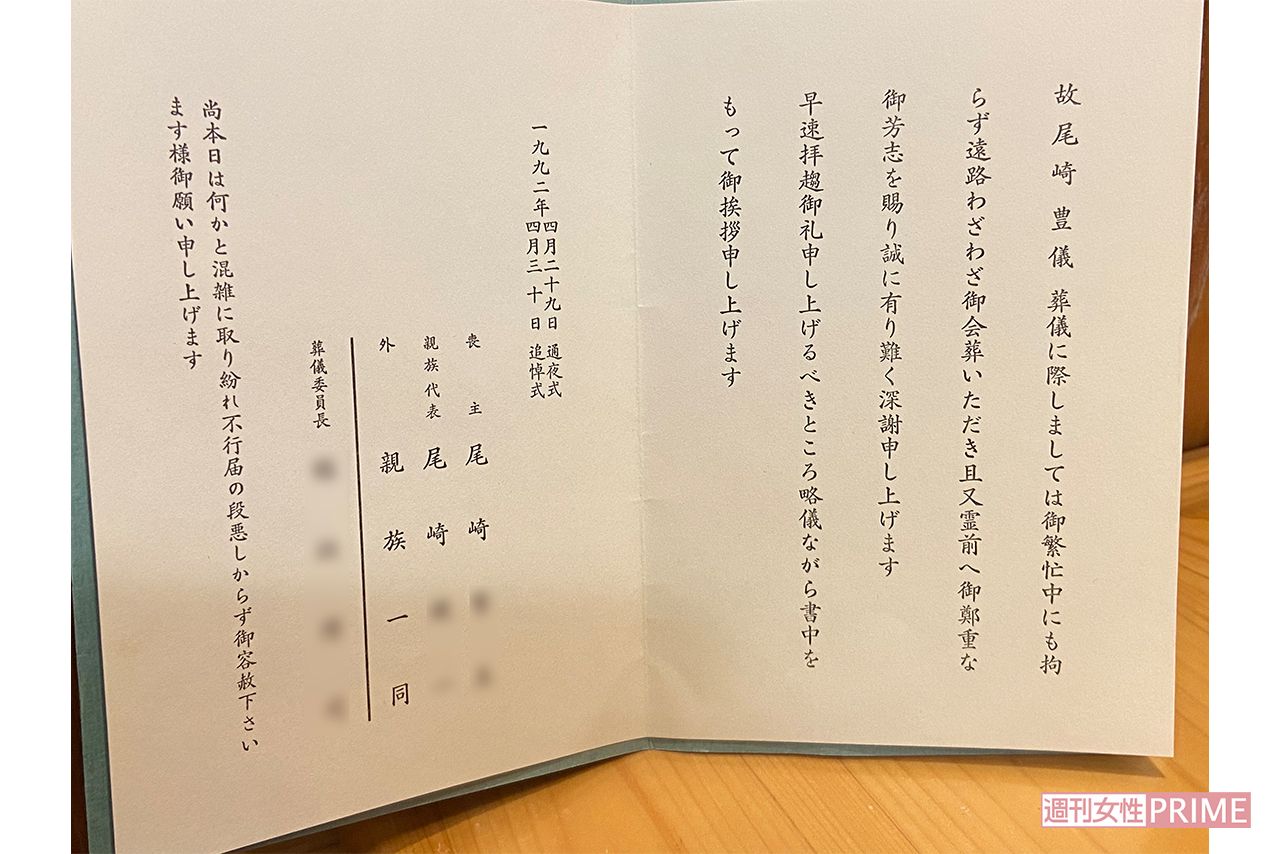 故 尾 崎 豊 儀 葬儀に際しましては御繁忙中にも拘
らず遠路わざわざ御会葬いただき且又霊前へ御鄭重な
御芳志を賜り誠に有り難く深謝申し上げます
早速拝趨御礼申し上げるべきところ略儀ながら書中を
もって御挨拶申し上げます
一九九二年 四月二十九日 通夜式
四月三十日 追悼式
喪主 尾崎
親族代表 尾崎
外 親族一同
葬儀委員長
尚本日は何かと混雑に取り紛れ不行届の段悪しからず御容赦下さい
ます様御願い申し上げます
週刊女性PRIME